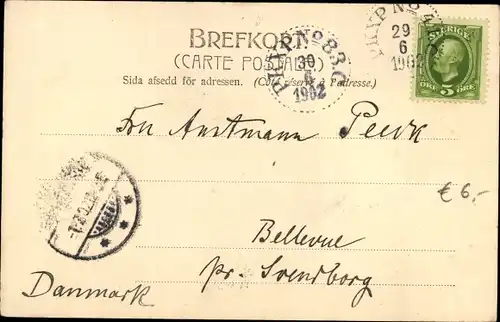 BREFKORT
(CARTE POSTALE)
Sida afsedd för adressen. (Côté réservé à l'adresse.)
PKXP No 83.C
30
6
1902
PKXP No 4
29
6
1902
SVERIGE
ÖRE 5 ÖRE
Frn Amtmann Peeck
€ 6,-
Bellevue
pr. Svendborg
Danmark